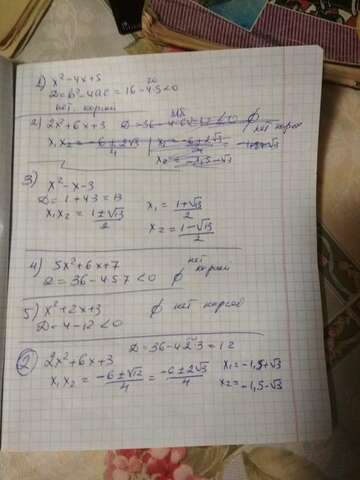 1) x²-4x+5
D=b²-4ac=16-4·5<0
20
нет. корней
2) 2x²+6x+3 D=36-4·6·12<0 ∅
нет корней
x₁x₂ = -6±2√3 x₁ = -6+2√3
x₂ = -1,5-√3
3) x²-x-3
D=1+4·3=13
x₁x₂ = 1±√13 / 2 x₁ = 1+√13 / 2
x₂ = 1-√13 / 2
4) 5x²+6x+7 нет корней
D=36-4·5·7<0 ∅
5) x²+2x+3 ∅ нет корней
D=4-12<0
② 2x²+6x+3 D=36-4·2·3=12
x₁x₂ = -6±√12 / 4 = -6±2√3 / 4 x₁=-1,5+√3
x₂=-1,5-√3